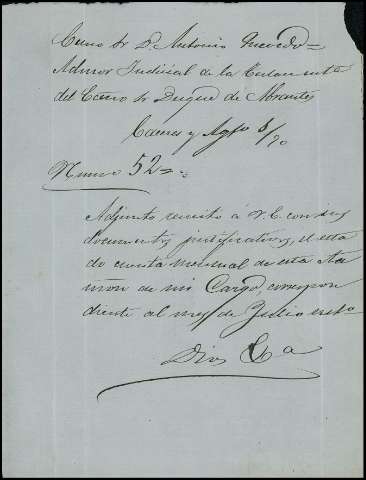 Excmo Sr D. Antonio Quevedo=
Admor Judicial de la Testamentª
del Excmo Sr Duque de Abrantes
Caceres y Agto 6/90
Numero 52=
Adjunto remito á V.E. con sus
documentos justificativos, el esta
do cuenta mensual de esta Ad
mon de mi Cargo, correspon
diente al mes de Julio
Dios &a